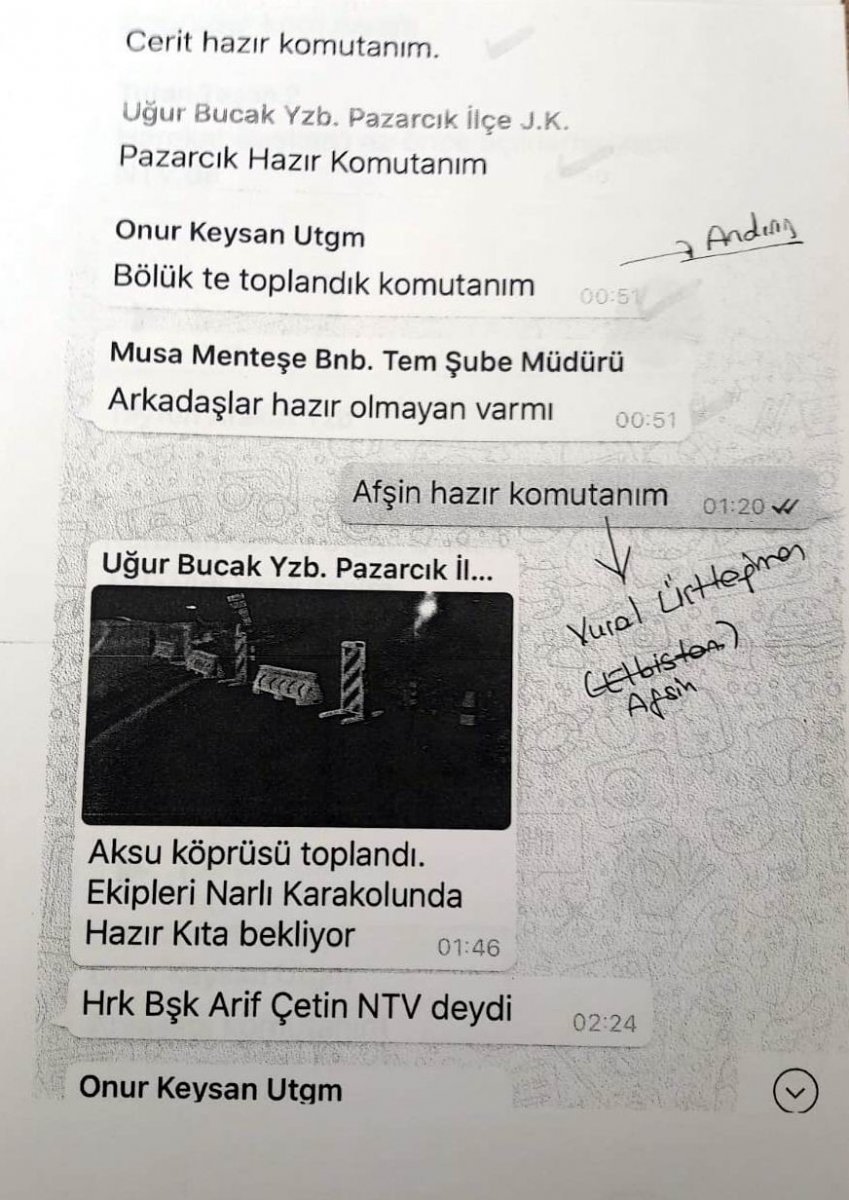 Cerit hazır komutanım.
Uğur Bucak Yzb. Pazarcık İlçe J.K.
Pazarcık Hazır Komutanım
Onur Keysan Utgm
Andırın
Bölük te toplandık komutanım 00:51
Musa Menteşe Bnb. Tem Şube Müdürü
Arkadaşlar hazır olmayan varmı 00:51
Afşin hazır komutanım 01:20
Vural Üsteğmen
(Elbistan)
Afşin
Uğur Bucak Yzb. Pazarcık İl...
Aksu köprüsü toplandı.
Ekipleri Narlı Karakolunda
Hazır Kıta bekliyor 01:46
Hrk Bşk Arif Çetin NTV deydi 02:24
Onur Keysan Utgm